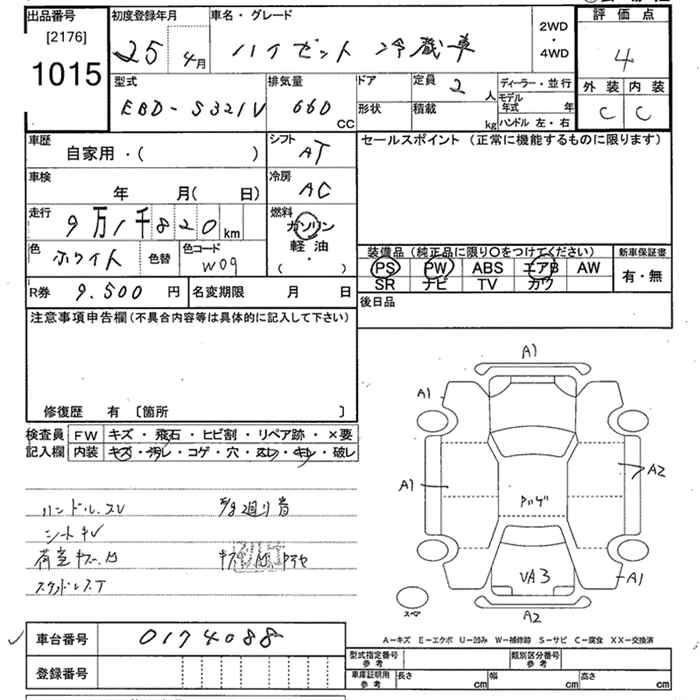 出品番号 初度登録年月 車名・グレード 2WD・4WD 評価点
[2176]
1015 25 4月 ハイゼット 冷蔵車 4
型式 排気量 ドア 定員 2人 ディーラー・並行 外装 内装
EBD-S321V 660 CC 形状 積載 kg モデル年式 年 C C
ハンドル 左・右
車歴 自家用・( ) シフト AT セールスポイント (正常に機能するものに限ります)
車検 年 月( 日) 冷房 AC
走行 9万1千820km 燃料 ガソリン
軽油
・
( )
色 ホワイト 色替 色コード W09 装備品 (純正品に限り○をつけてください) 新車保証書
PS PW ABS エアB AW 有・無
SR ナビ TV カワ
R券 9.500円 名変期限 月 日 後日品
注意事項申告欄(不具合内容等は具体的に記入して下さい)
修復歴 有 [箇所 ]
検査員 FW キズ・飛石・ヒビ割・リペア跡・×要
記入欄 内装 キズ・汚レ・コゲ・穴・スレ・キレ・破レ
ハンドルスレ
シートキレ
スタッドレスT
A1
A1
A1 A2
VA3 A1
スペア A2
A-キズ E-エクボ U-凹み W-補修跡 S-サビ C-腐食 XX-交換済
車台番号 0174088
登録番号
型式指定番号 参考 類別区分番号 参考
車庫証明用 参考 長さ cm 幅 cm 高さ cm